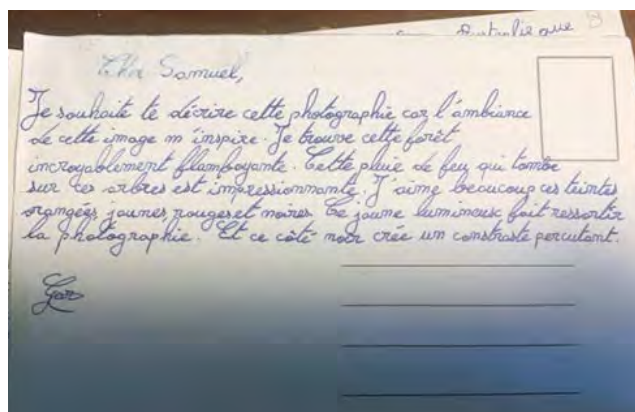 Australie que
Cher Samuel,
Je souhaite te décrire cette photographie car l'ambiance
de cette image m'inspire. Je trouve cette forêt
incroyablement flamboyante. Cette pluie de feu qui tombe
sur ces arbres est impressionnante. J'aime beaucoup ces teintes
orangées, jaunes, rouges et noires. Ce jaune lumineux fait ressortir
la photographie. Et ce côté noir crée un constraste percutant.